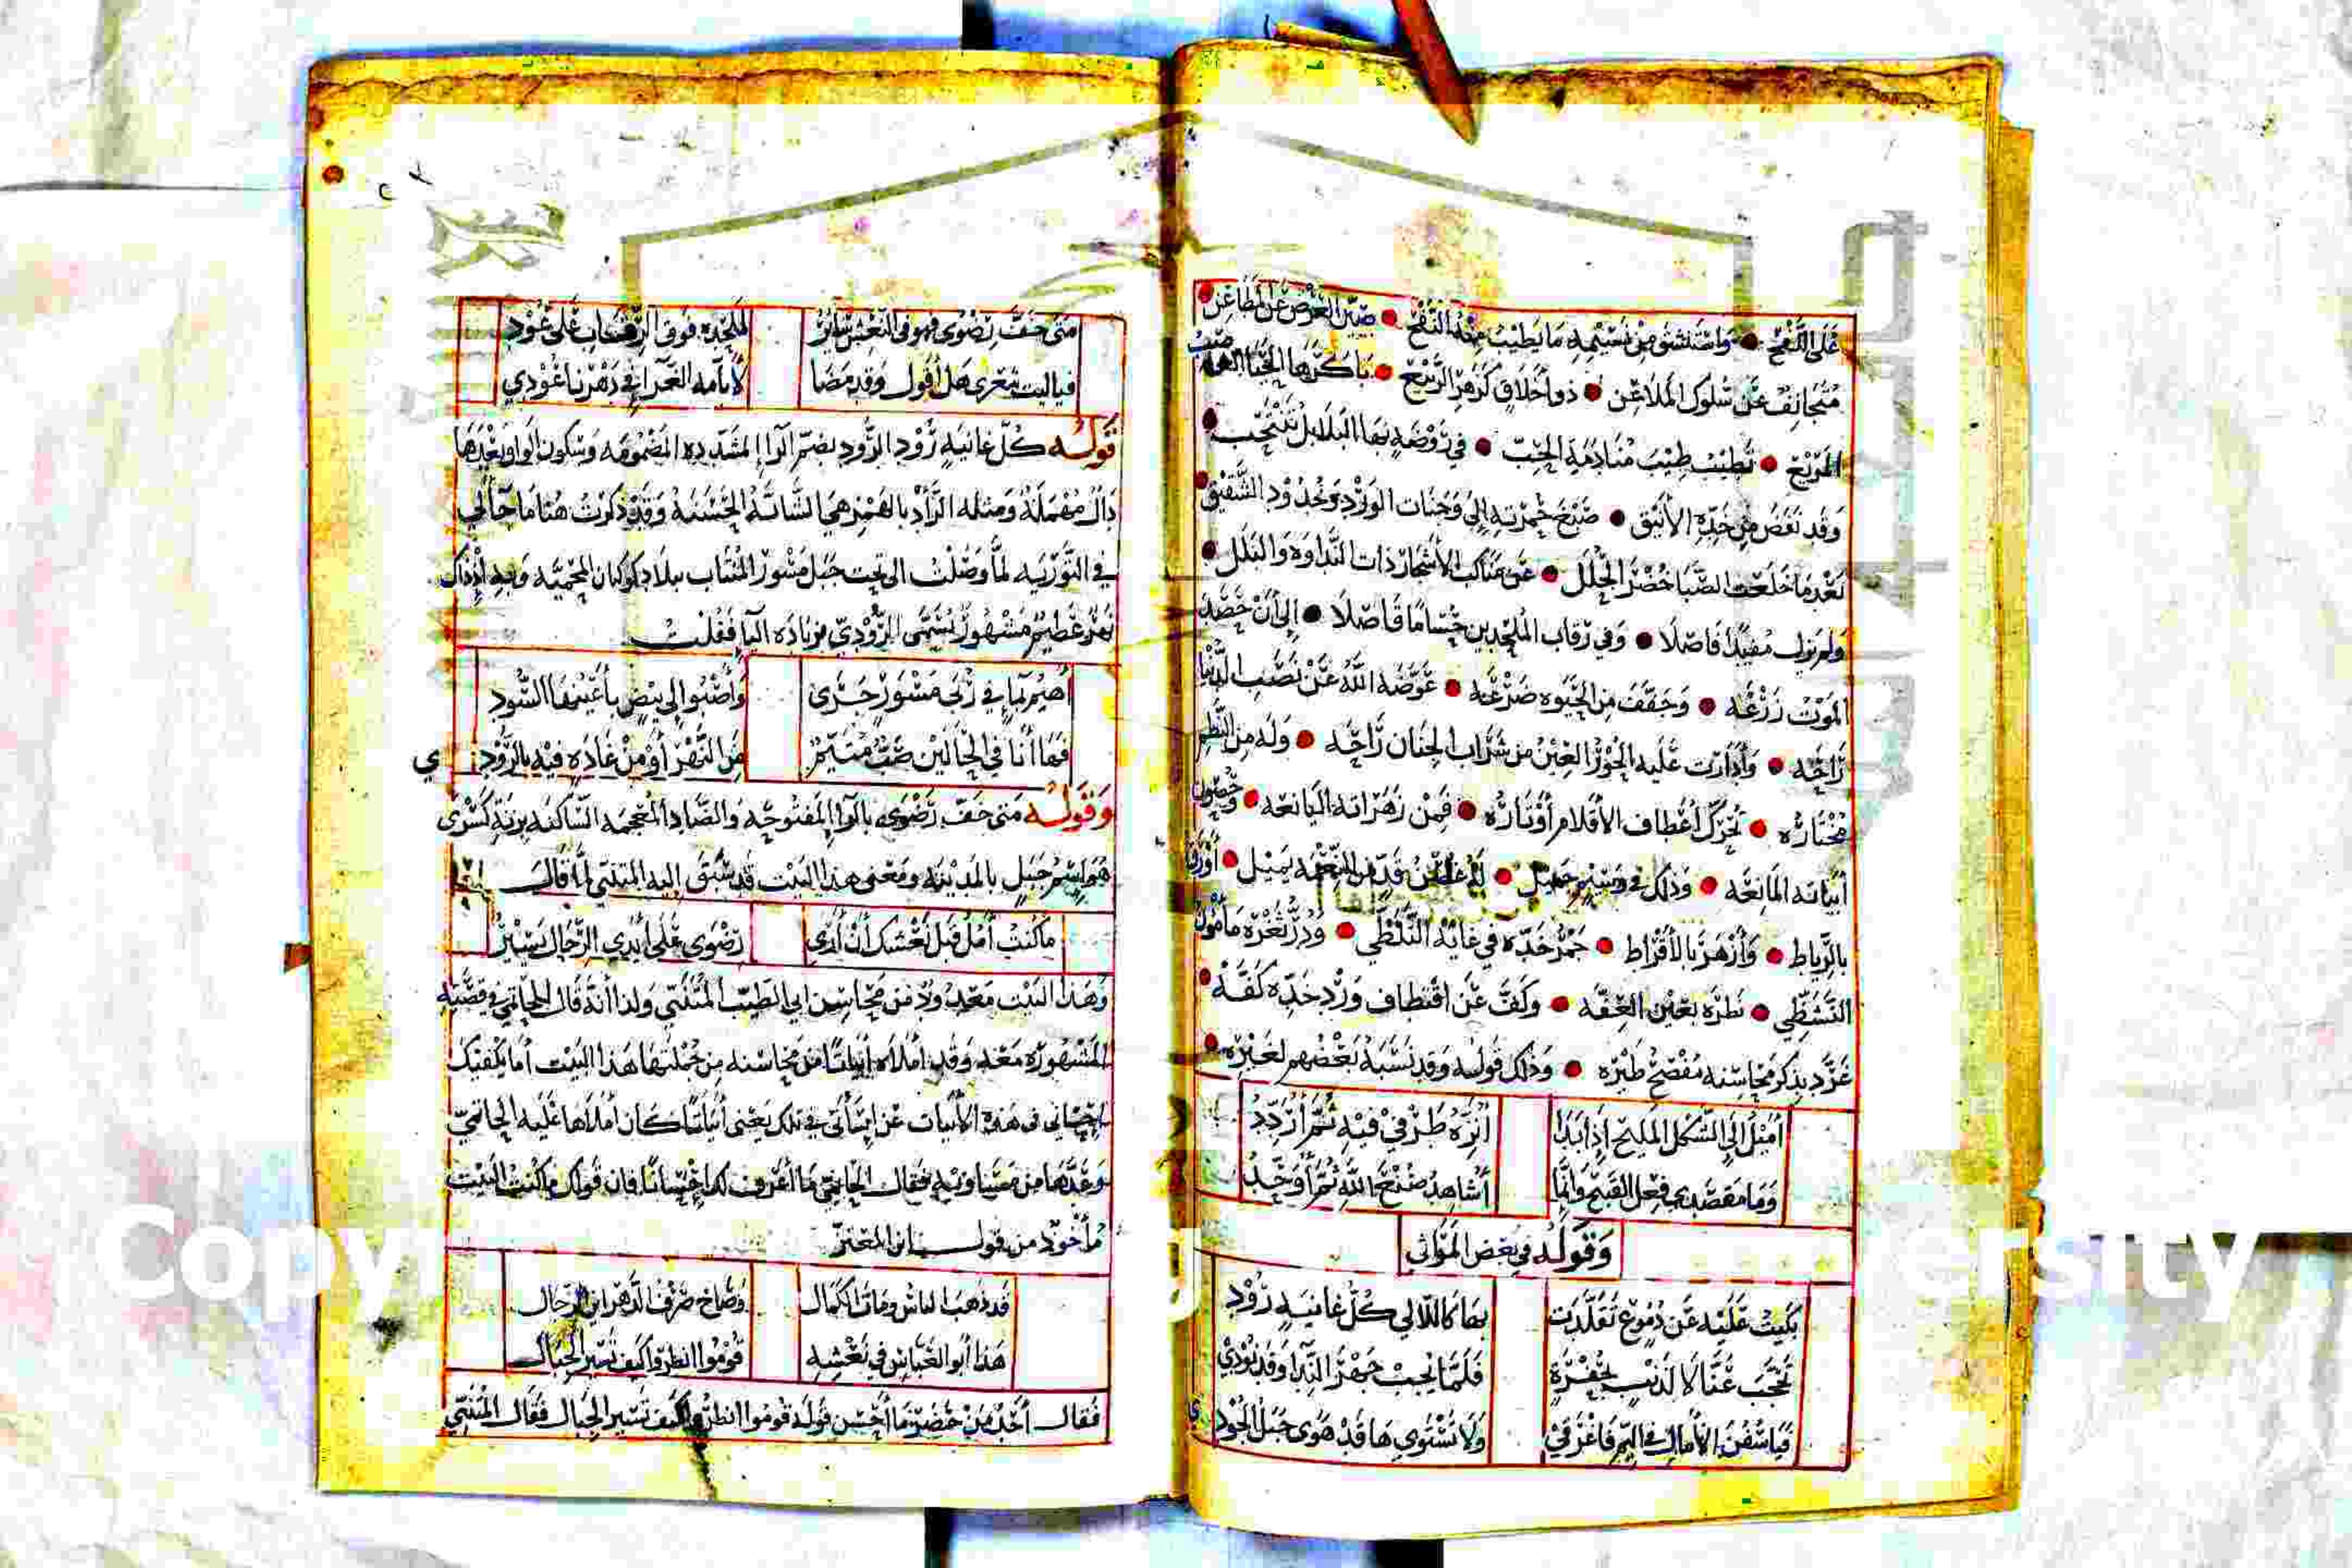 على اللفح • واستنشق من نسيمه ما يطيب منه النفح • صين العرض عن المطاعن •
متجانف عن سلوك الملاعن • ذو أخلاق كزهر الربيع • باكرها الحيا
المريع • تطيب طيب منادمة الحبّ • في روضة بها البلابل تنتحب •
وقد نفض من خده الأنيق • صبغ خمرته إلى وجنات الورد وخدود الشقيق •
بعد ما خلعت الصبا خضر الحلل • عن مناكب الأشجار ذات النداوة والبلل •
ولم يزل مفيدًا فاصلا • وفي رقاب الملحدين حسامًا فاصلا • إلى أن حصد
الموت زرعه • وجفف من الحيوة ضرعه • عوضه الله عن نصب الدنيا
راحه • وأدارت عليه الحور العين من شراب الجنان راحه • وله من النظم
مختاره • تحرك أعطاف الأقلام أوتاره • فمن زهراته اليانعه • وحصون
أبياته المانعه • وذلك في وسيم جميل • من النعمة يميل •
بالرباط • وأزهر بالأقراط • جمر خده في غاية التلظي • ودر ثغره مأمون
التشظي • نظره بعين العفه • وكف عن اقتطاف ورد خده كفه •
غرد بذكر محاسنه مفصح طيره • وذلك قوله وقد نسبه بعضهم لغيره •
أميل إلى الشكل المليح إذا بدا أنزه طرفي فيه ثم أردد
وما مقصدي فعل القبيح وإنما أشاهد صنع الله ثم أوحد
وقوله في بعض المراثي
بكيت عليه عن دموع تقلدت بها كاللآلي كل غانية رود
تحجب عنا لا لذنب بحفرة فلما يجب جهر الندا وقد نودي
فيا سفن الآمال في اليم فاغرقي ولا تستوي ها قد هوى جبل الجودي
متى خف رضوى فهو في النعش سائر لملحده فوق الرقاب على عود
فيا ليت شعري هل أقول وقد مضا لأيامه الغراء في دهرنا عودي
قوله كل غانية رود الرود بضم الراء المشدده المضمومه وسكون الواو وبعدها
دال مهملة ومثله الرأد بالهمز هي الشابة الحسنة وقد ذكرت هنا ما جآلي
في التورية لما وصلت الى تحت جبل مسور المنتاب ببلاد كوكبان المحمية وبه إذ ذاك
نهر عظيم مشهور يسمى الرودي بزيادة اليا فقلت
أهيم بما في ربى مسور جرى وأصبوا إلى بيض بأعينها السود
فها أنا في الحالين صب متيم من النهر أو من غادة فيه بالرودي
وقوله متى خف رضوى بالراء المفتوحه والضاد المعجمه الساكنه بزنة كسرى
هو اسم جبل بالمدينه ومعنى هذا البيت قد سبق اليه المتنبي لما قال
ما كنت آمل قبل نعشك أن أرى رضوى على أيدي الرجال يسير
وهذا البيت معدود من محاسن ابي الطيب المتنبي ولذا أنه قال للحاتمي في قصته
المشهوره معه وقد املاه أبياتا من محاسنه من جملتها هذا البيت أما يكفيك
إحساني في هذه الأبيات عن إساتي في تلك يعني أبياتا كان أملاها عليه الحاتمي
وعدها من مساويه فقال الحاتمي ما أعرف لك إحسانا فان قولك ما كنت البيت
مأخوذ من قول ابن المعتز
قد ذهب الناس ومات الكمال وصاح صرف الدهر اين الرجال
هذا أبو العباس في نعشه قوموا انظروا كيف تسير الجبال
فقال أحد من حضر ما أحسن قوله قوموا انظروا كيف تسير الجبال فقال المتنبي